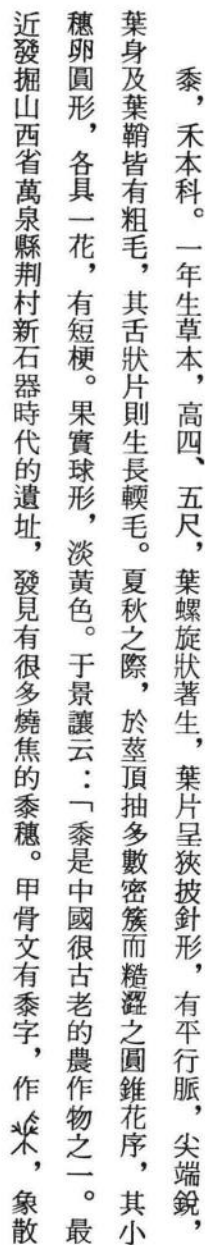 黍，禾本科。一年生草本，高四、五尺，葉螺旋狀著生，葉片呈狹披針形，有平行脈，尖端銳，
葉身及葉鞘皆有粗毛，其舌狀片則生長輭毛。夏秋之際，於莖頂抽多數密簇而糙澀之圓錐花序，其小
穗卵圓形，各具一花，有短梗。果實球形，淡黃色。于景讓云：「黍是中國很古老的農作物之一。最
近發掘山西省萬泉縣荆村新石器時代的遺址，發見有很多燒焦的黍穗。甲骨文有黍字，作，象散